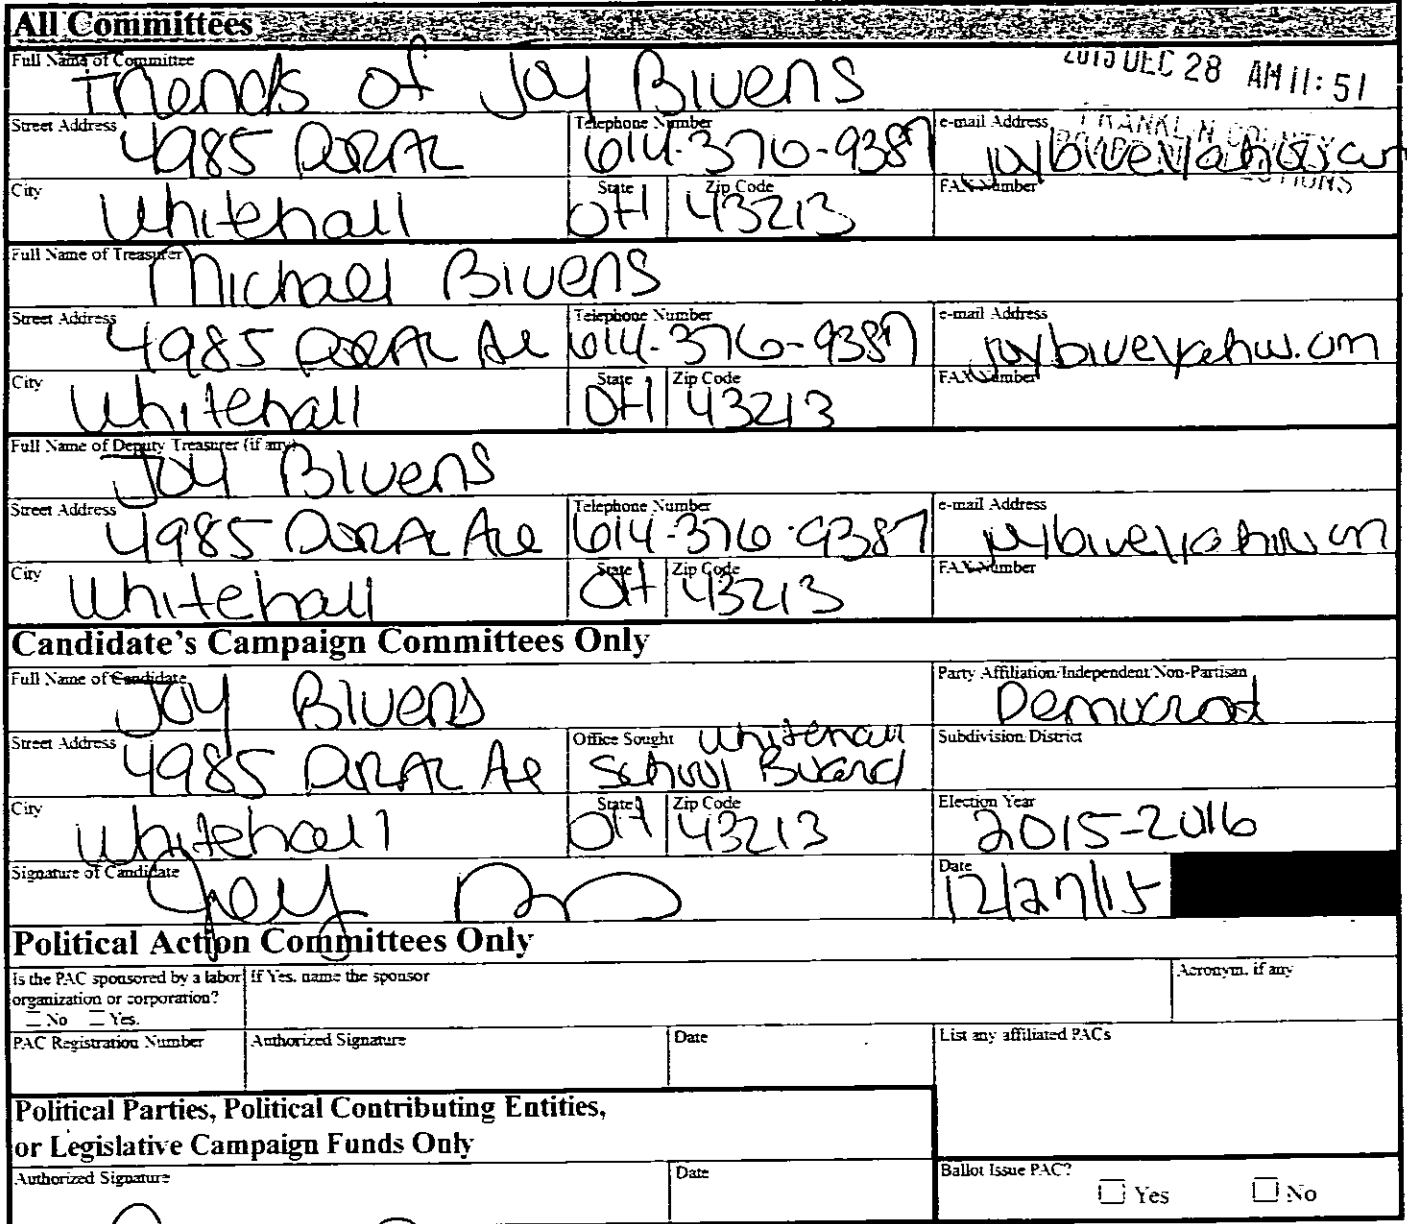 All Committees
Full Name of Committee
Friends of Joy Bivens
2015 DEC 28 AM 11:51
Street Address
4985 DORAL
Telephone Number
614-376-9387
e-mail Address
FRANKLIN COUNTY
City
Whitehall
State
OH
Zip Code
43213
FAX Number
Full Name of Treasurer
Michael Bivens
Street Address
4985 DORAL Ave
Telephone Number
614-376-9387
e-mail Address
City
Whitehall
State
OH
Zip Code
43213
FAX Number
Full Name of Deputy Treasurer (if any)
Joy Bivens
Street Address
4985 DORAL Ave
Telephone Number
614-376-9387
e-mail Address
City
Whitehall
State
OH
Zip Code
43213
FAX Number
Candidate's Campaign Committees Only
Full Name of Candidate
Joy Bivens
Party Affiliation/Independent/Non-Partisan
Democrat
Street Address
4985 DORAL Ave
Office Sought
Whitehall
School Board
Subdivision/District
City
Whitehall
State
OH
Zip Code
43213
Election Year
2015-2016
Signature of Candidate
Joy
Date
12/27/15
Political Action Committees Only
Is the PAC sponsored by a labor
organization or corporation?
No Yes.
If Yes, name the sponsor
Acronym, if any
PAC Registration Number
Authorized Signature
Date
List any affiliated PACs
Political Parties, Political Contributing Entities,
or Legislative Campaign Funds Only
Authorized Signature
Date
Ballot Issue PAC?
Yes No